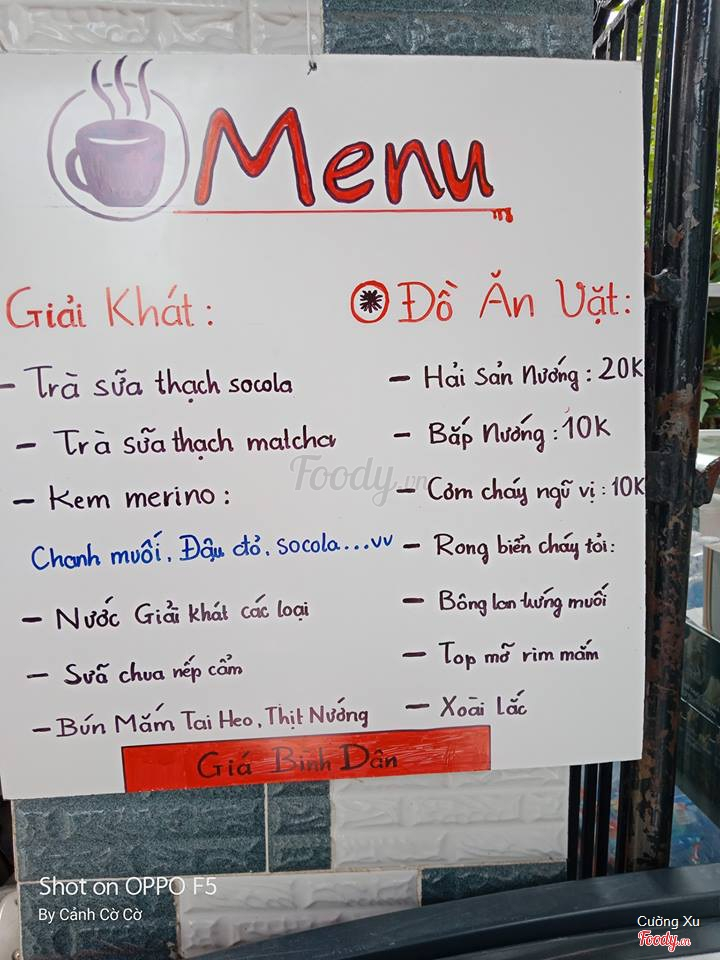 Menu
Giải Khát :
- Trà sữa thạch socola
- Trà sữa thạch matcha
- Kem merino :
Chanh muối, Đậu đỏ, socola...vv
- Nước Giải khát các loại
- Sữa chua nếp cẩm
- Bún Mắm Tai Heo, Thịt Nướng
Đồ Ăn Vặt :
- Hải Sản Nướng : 20K
- Bắp Nướng : 10K
- Cơm cháy ngũ vị : 10K
- Rong biển cháy tỏi :
- Bông lan trứng muối
- Top mỡ rim mắm
- Xoài Lắc
Giá Bình Dân
Foody.vn
Shot on OPPO F5
By Cảnh Cờ Cờ
Cường Xu
Foody.vn